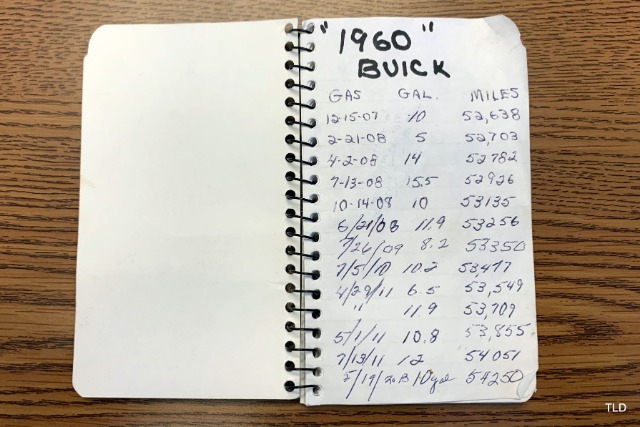 "1960"
BUICK
GAS GAL. MILES
12-15-07 10 52,638
2-21-08 5 52,703
4-2-08 14 52782
7-13-08 15.5 52926
10-14-08 10 53135
6/21/08 11.9 53256
7/26/09 8.2 53350
7/5/10 10.2 53,477
4/29/11 6.5 53,549
" 11.9 53,709
5/1/11 10.8 53,855
7/13/11 12 54051
10gal 54250
TLD